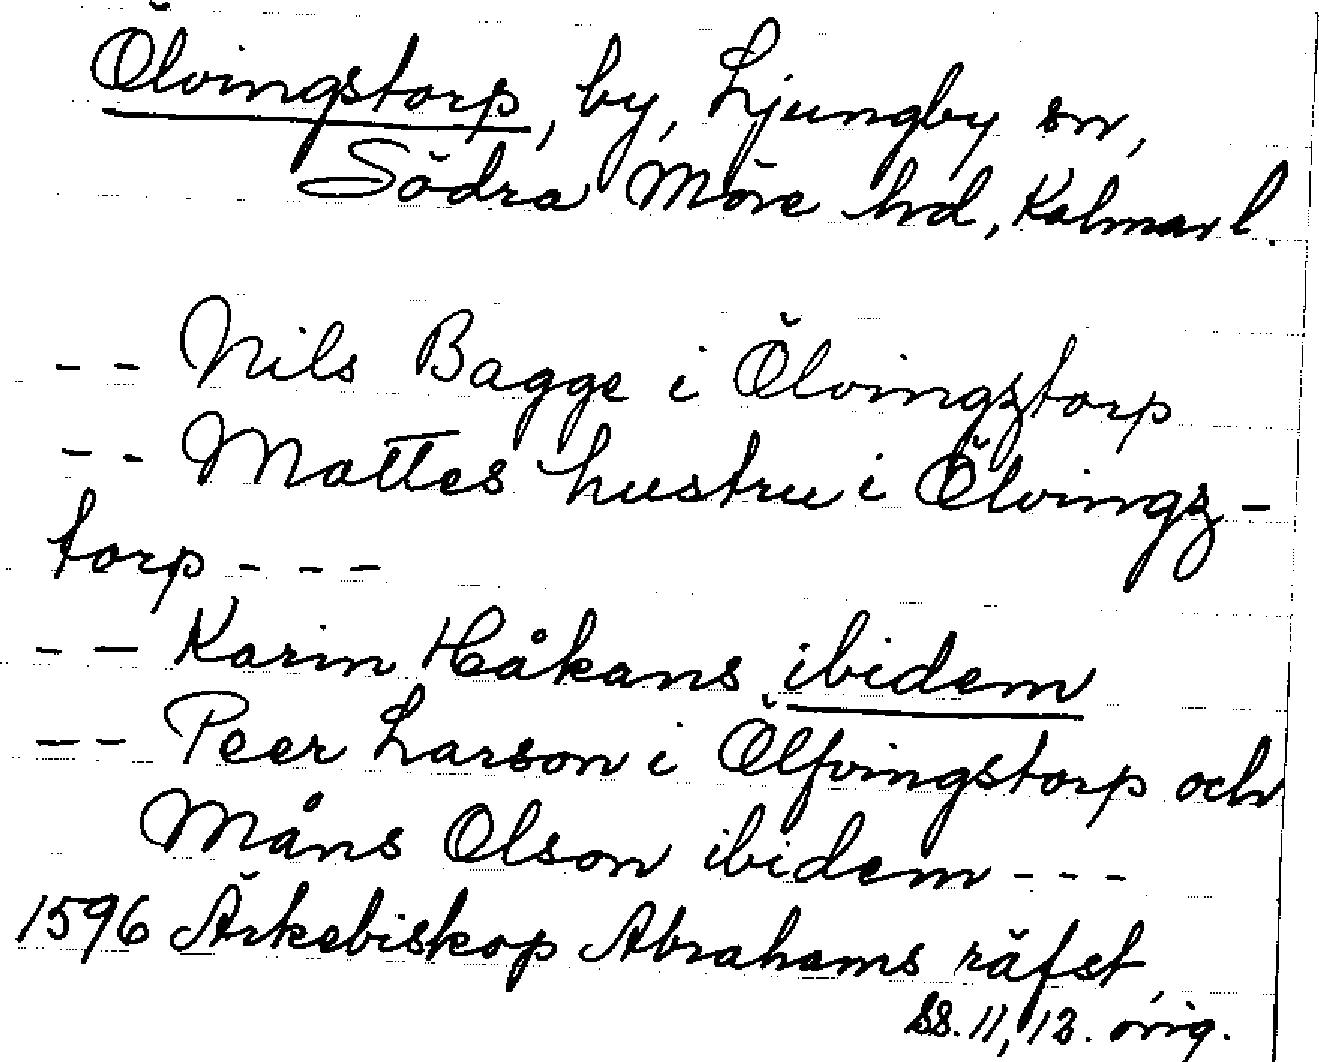 Ölvingstorp, by, Ljungby sn,
Södra Möre hd, Kalmar l.
-- Nils Bagge i Ölvingztorp
-- Mattes hustru i Ölvingz-
torp ---
-- Karin Håkans ibidem
-- Peer Larson i Ölfvingstorp och
Måns Olson ibidem ---
1596 Ärkebiskop Abrahams räfst
ss. 11, 12. orig.